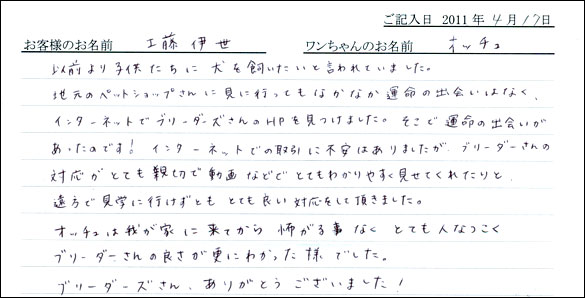 ご記入日 2011年4月17日
お客様のお名前 工藤 伊世 ワンちゃんのお名前 オッチェ
以前より子供たちに犬を飼いたいと言われていました。
地元のペットショップさんに見に行ってもなかなか運命の出会いはなく、
インターネットでブリーダーズさんのHPを見つけました。そこで運命の出会いが
あったのです！インターネットでの取引に不安はありましたが、ブリーダーさんの
対応がとても親切で動画などでとてもわかりやすく見せてくれたりと、
遠方で見学に行けずともとても良い対応をして頂きました。
オッチェは我が家に来てから怖がる事なくとても人なつこく
ブリーダーさんの良さが更にわかった様でした。
ブリーダーズさん、ありがとうございました！